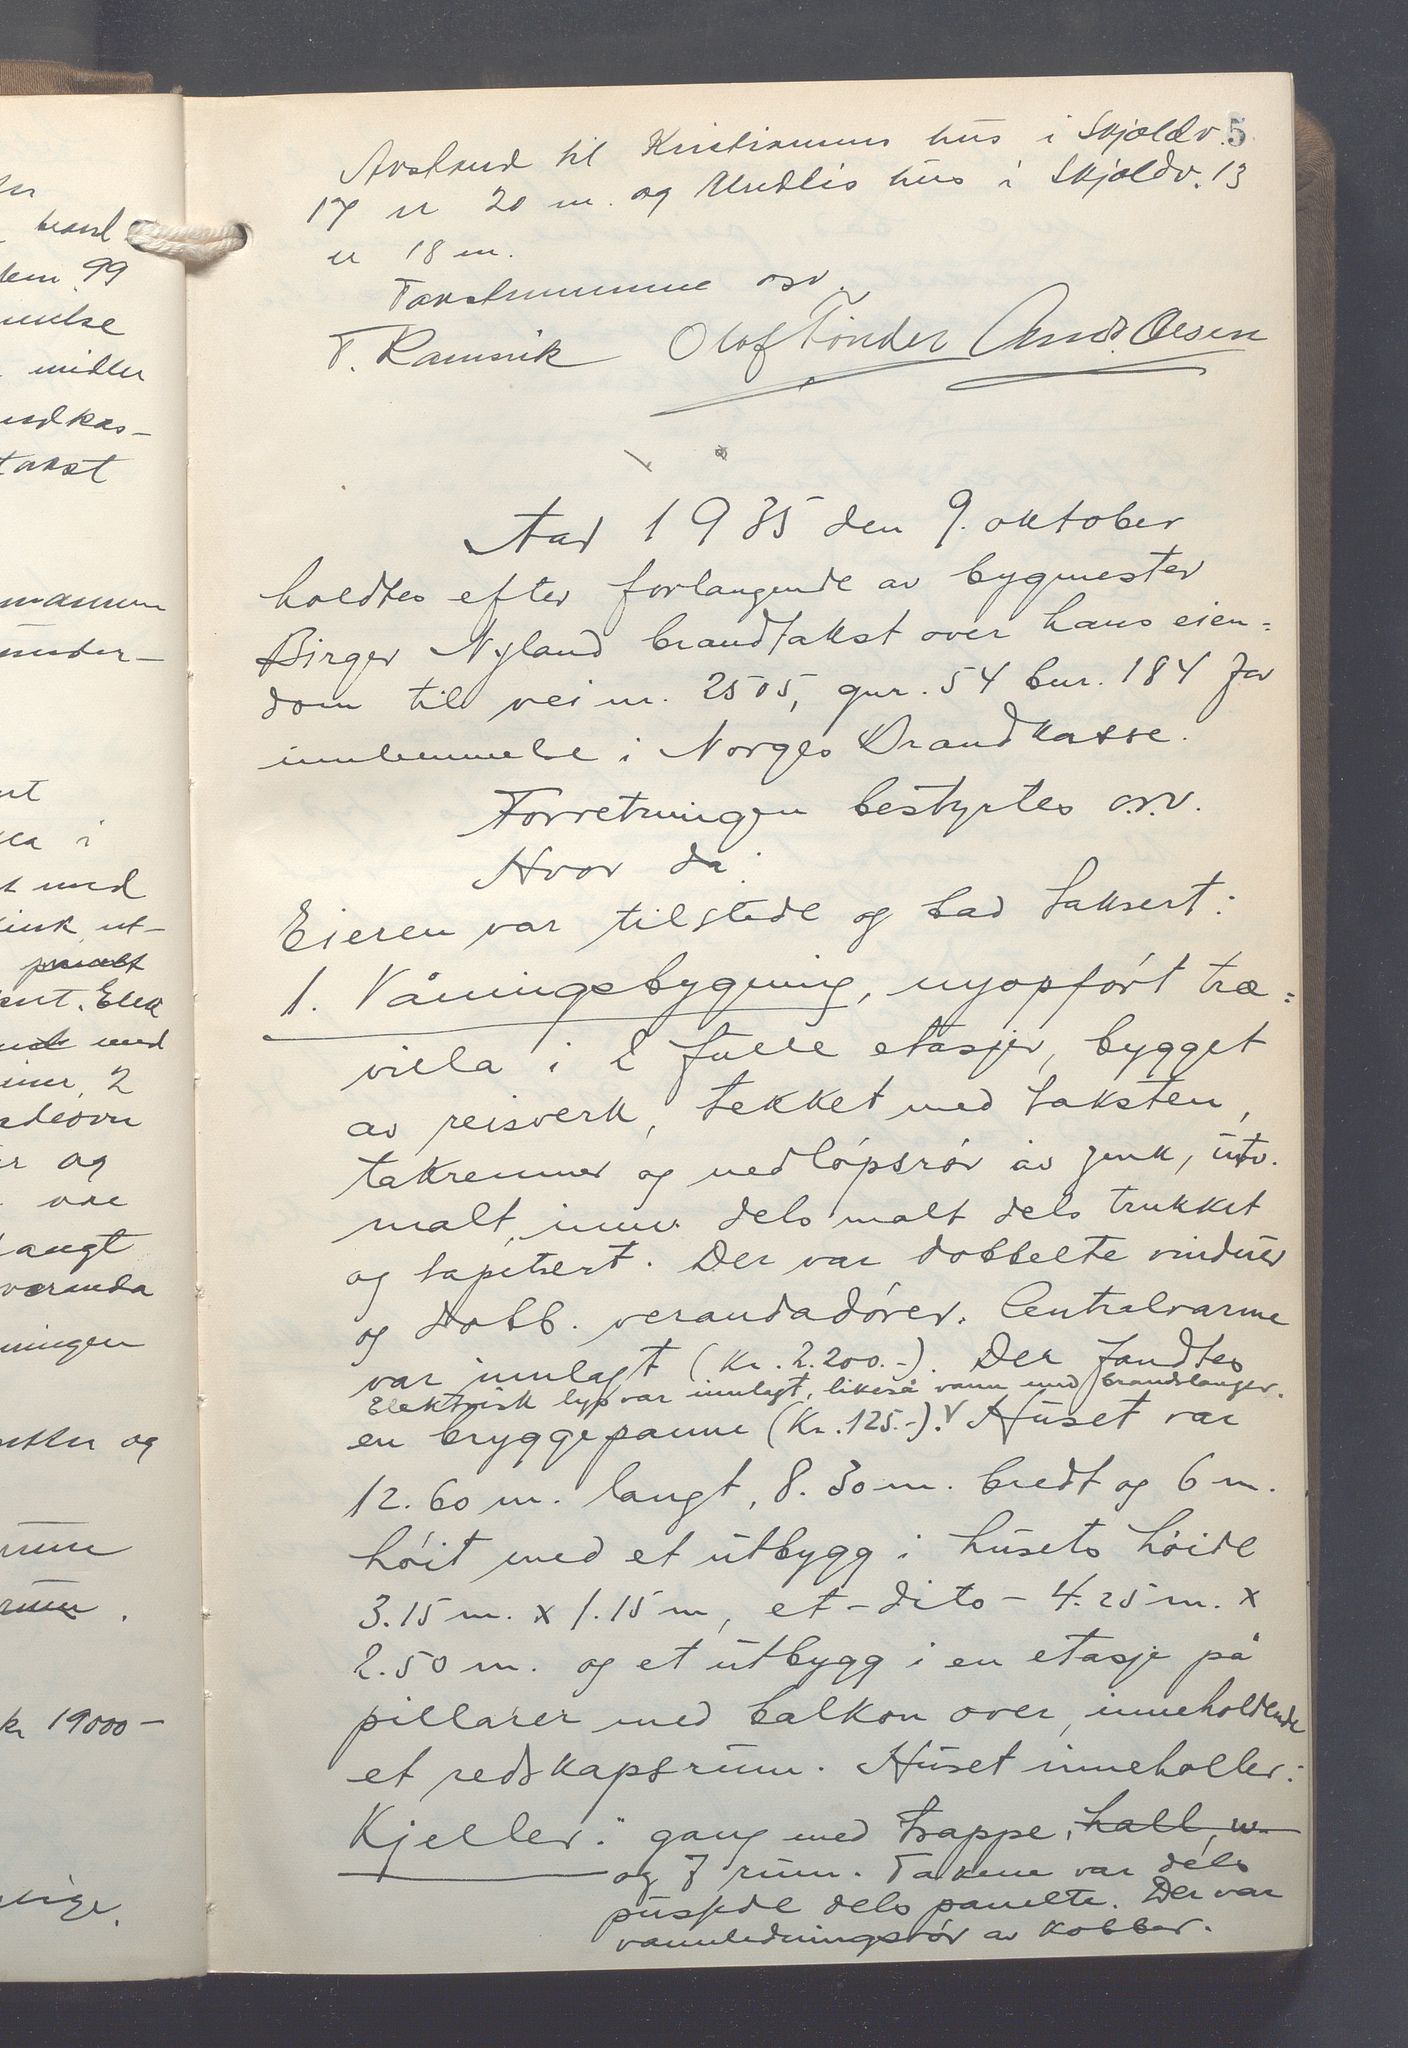 5
Avstand til Kristiansens hus i Skjoldv.
17 er 20 m. og Undlis hus i Skjoldv. 13
er 18 m.
Takstsummene osv.
T. Ramsvik Olaf Tönder Andr. Olsen
Aar 1935 den 9. oktober
holdtes efter forlangende av bygmester
Birger Nyland brandtakst over hans eien=
dom til vei nr. 2505, gnr. 54 bnr. 184 for
innlemmelse i Norges Brandkasse.
Forretningen bestyrtes osv.
Hvor da:
Eieren var tilstede og bad taksert:
1. Våningsbygning, nyopført træ=
villa i 2 fulle etasjer, bygget
av reisverk, tekket med taksten,
takrenner og nedløpsrør av zink, utv.
malt, innv. dels malt dels trukket
og tapetsert. Der var dobbelte vinduer
og dobb. verandadører. Centralvarme
var innlagt (Kr. 2.200.-). Der fandtes
Elektrisk lys var innlagt, likeså vann med brandslanger.
en bryggepanne (Kr. 125.-). V Huset var
12.60 m. langt, 8.30 m. bredt og 6 m.
høit med et utbygg i husets høide
3.15 m. x 1.15 m, et - dito - 4.25 m. x
2.50 m. og et utbygg i en etasje på
pillarer med balkon over, inneholdende
et redskapsrum. Huset inneholler:
Kjeller: gang med trappe, hall, w.
og 7 rum. Takene var dels
pussede dels panelte. Der var
vannledningsrør av kobber.
brand
99
midler
takst
i
med
ut-
Elek
med
2
og
langt
veranda
og
kr 19000-